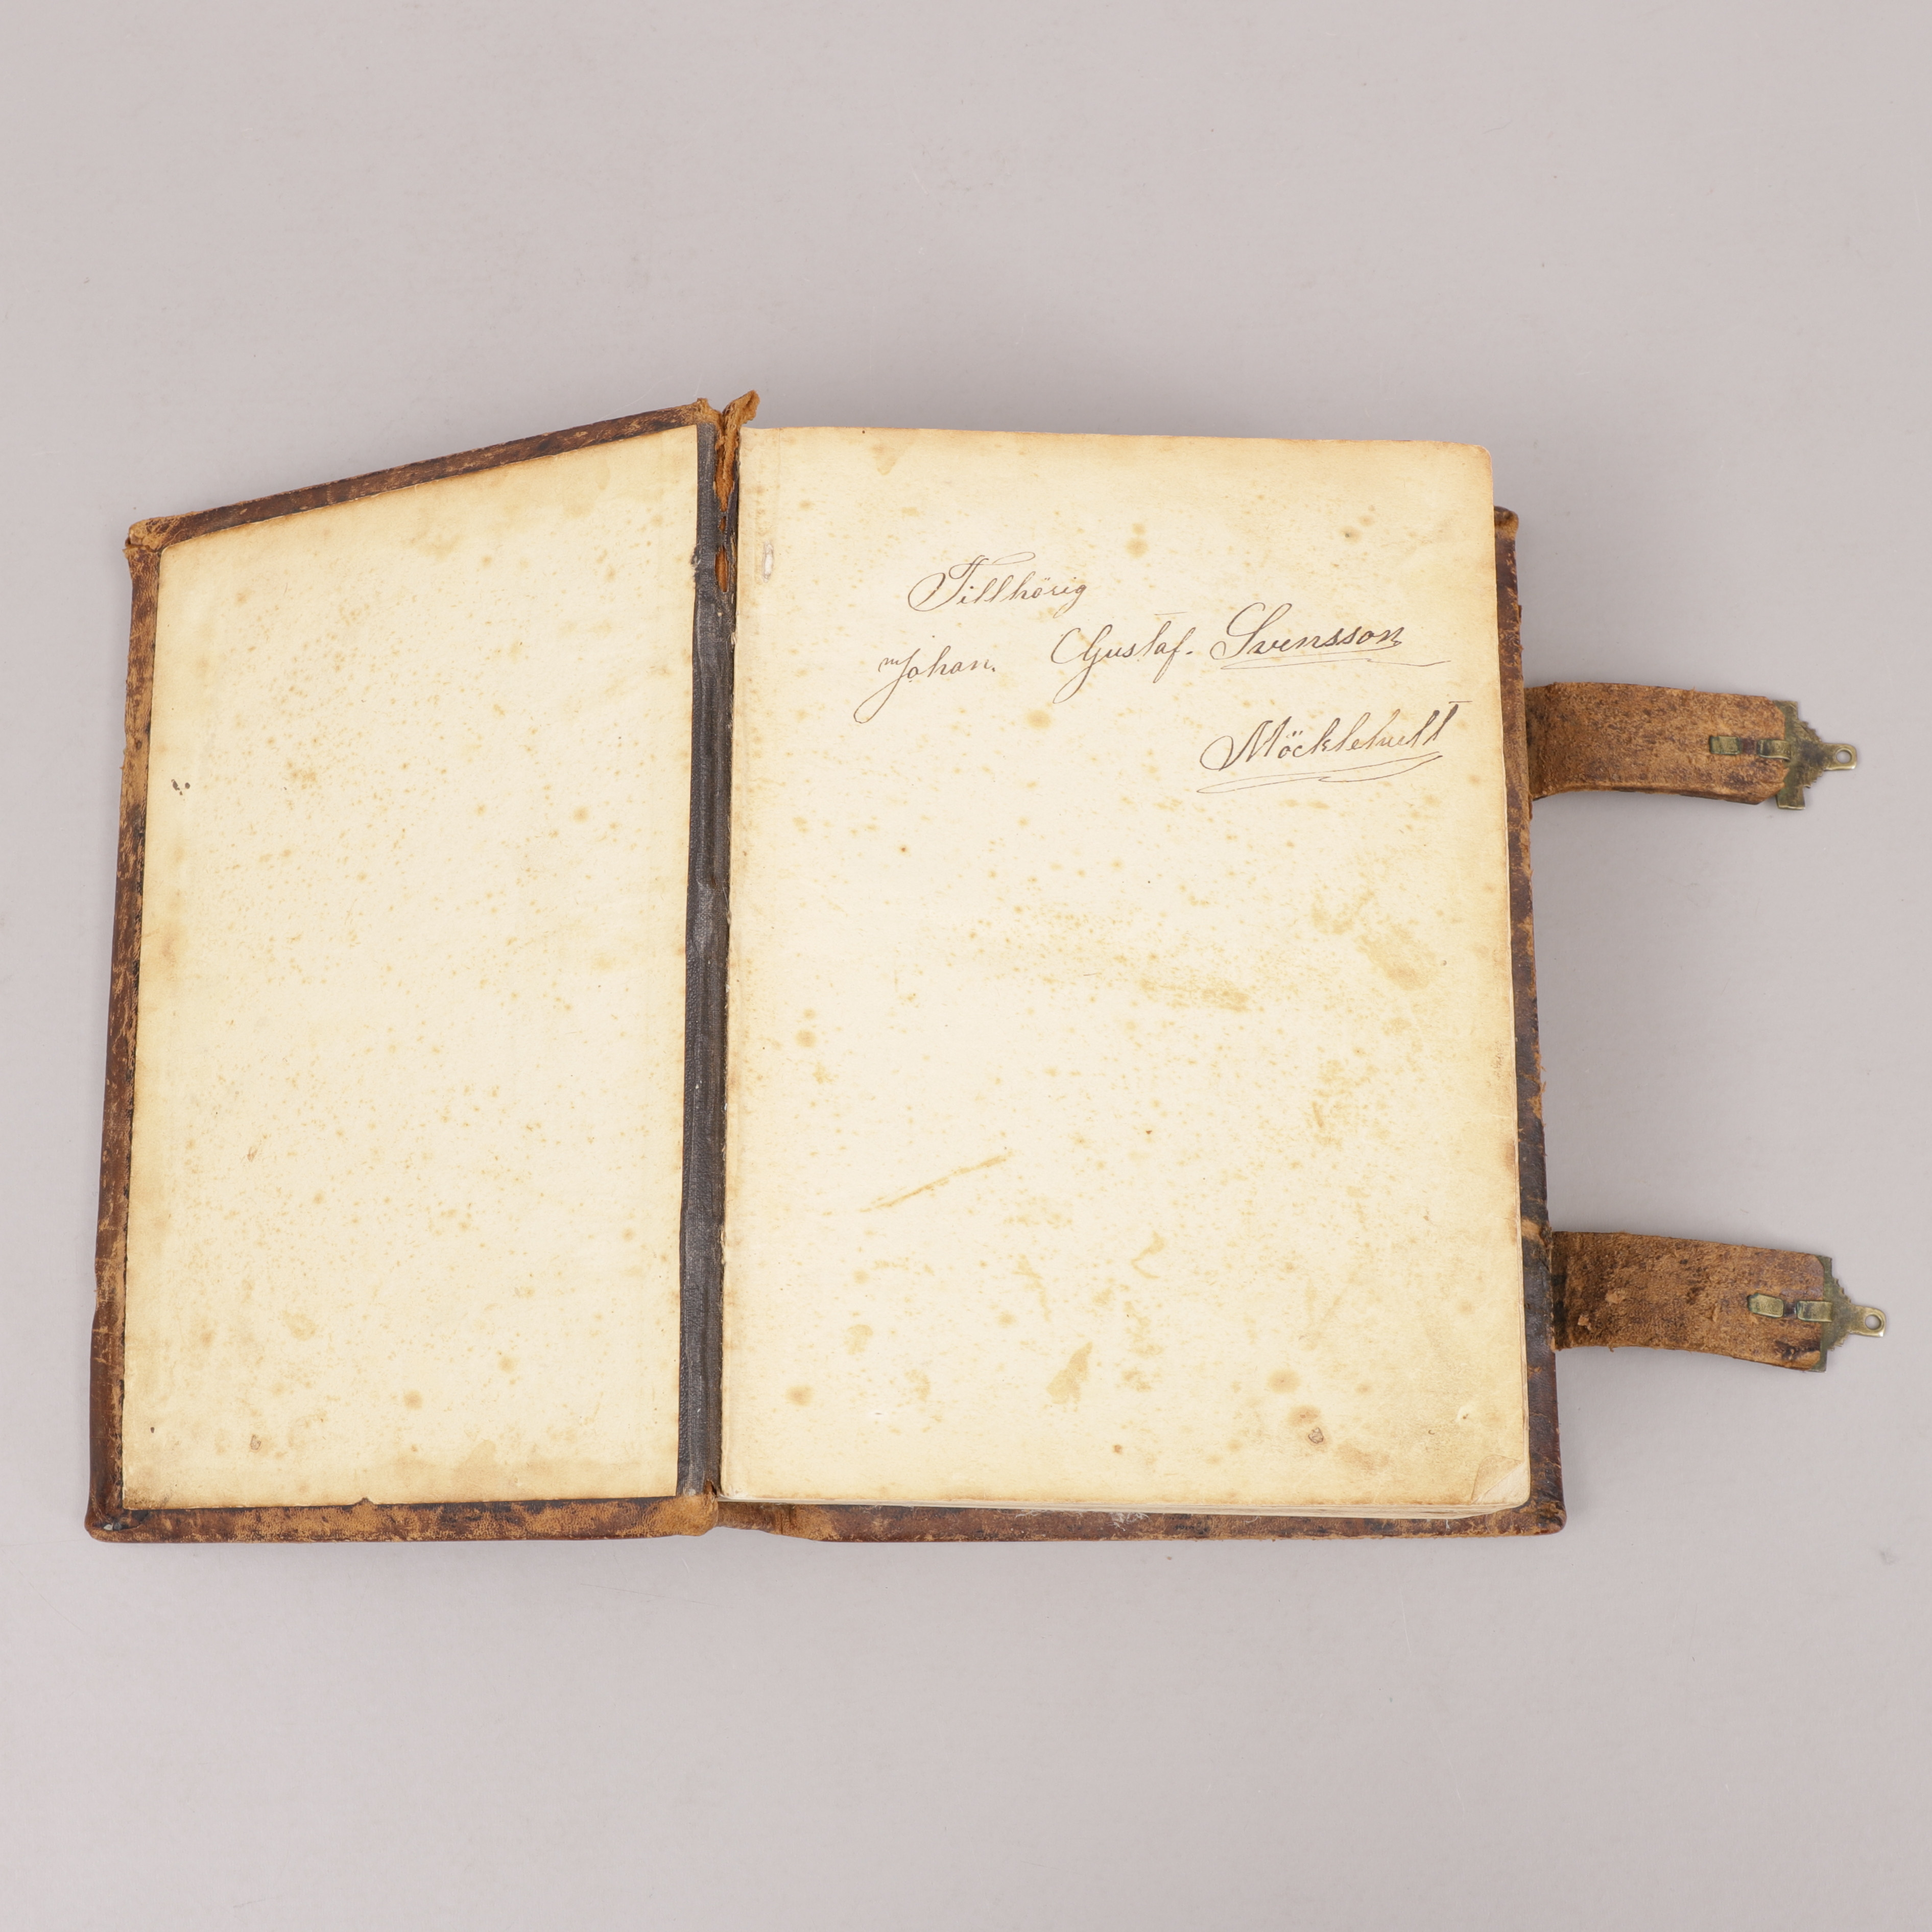 Tillhörig
Johan. Gustaf. Svensson
Möcklehult